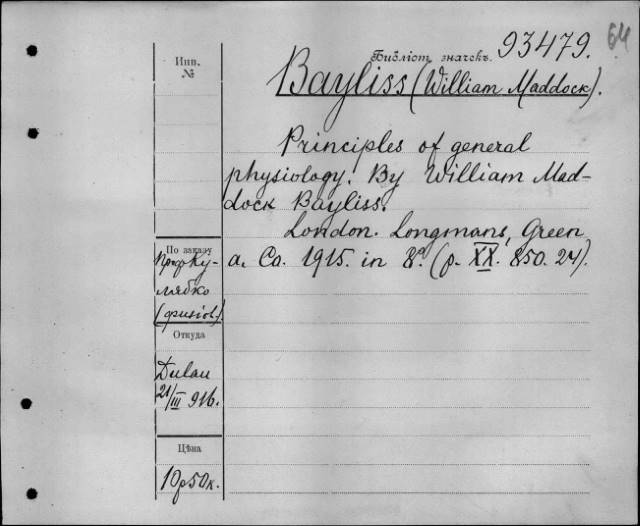 64
Библіот. значекъ. 93479.
Инв.
№
Bayliss (William Maddock).
Principles of general
physiology. By William Mad-
dock Bayliss.
London. Longmans, Green
a. Co. 1915. in 8º. (p. XX. 850. 24).
По заказу
проф Ку-
лябко
(физіол.)
Откуда
Dulau
21/III 916.
Цѣна
10р50к.